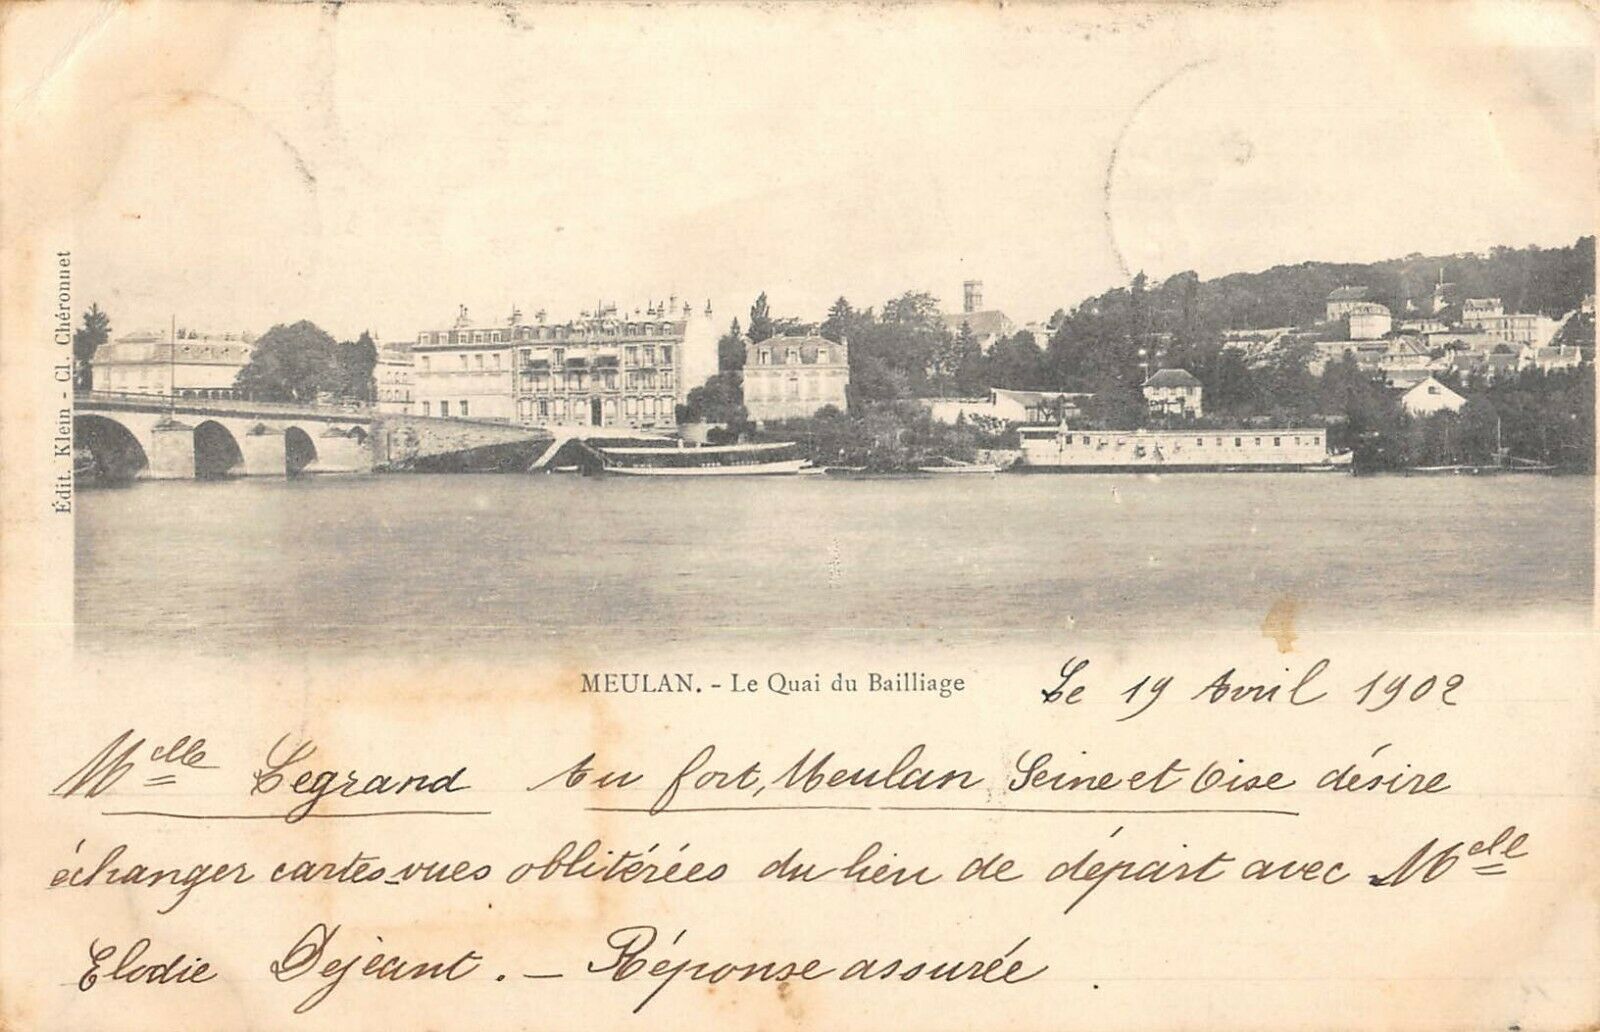 Édit. Klein - Cl. Chéronnet
MEULAN. - Le Quai du Bailliage
Le 19 Avril 1902
Melle Legrand Au fort, Meulan Seine et Oise désire
échanger cartes-vues oblitérées du lieu de départ avec Melle
Elodie Dejeant. - Réponse assurée.